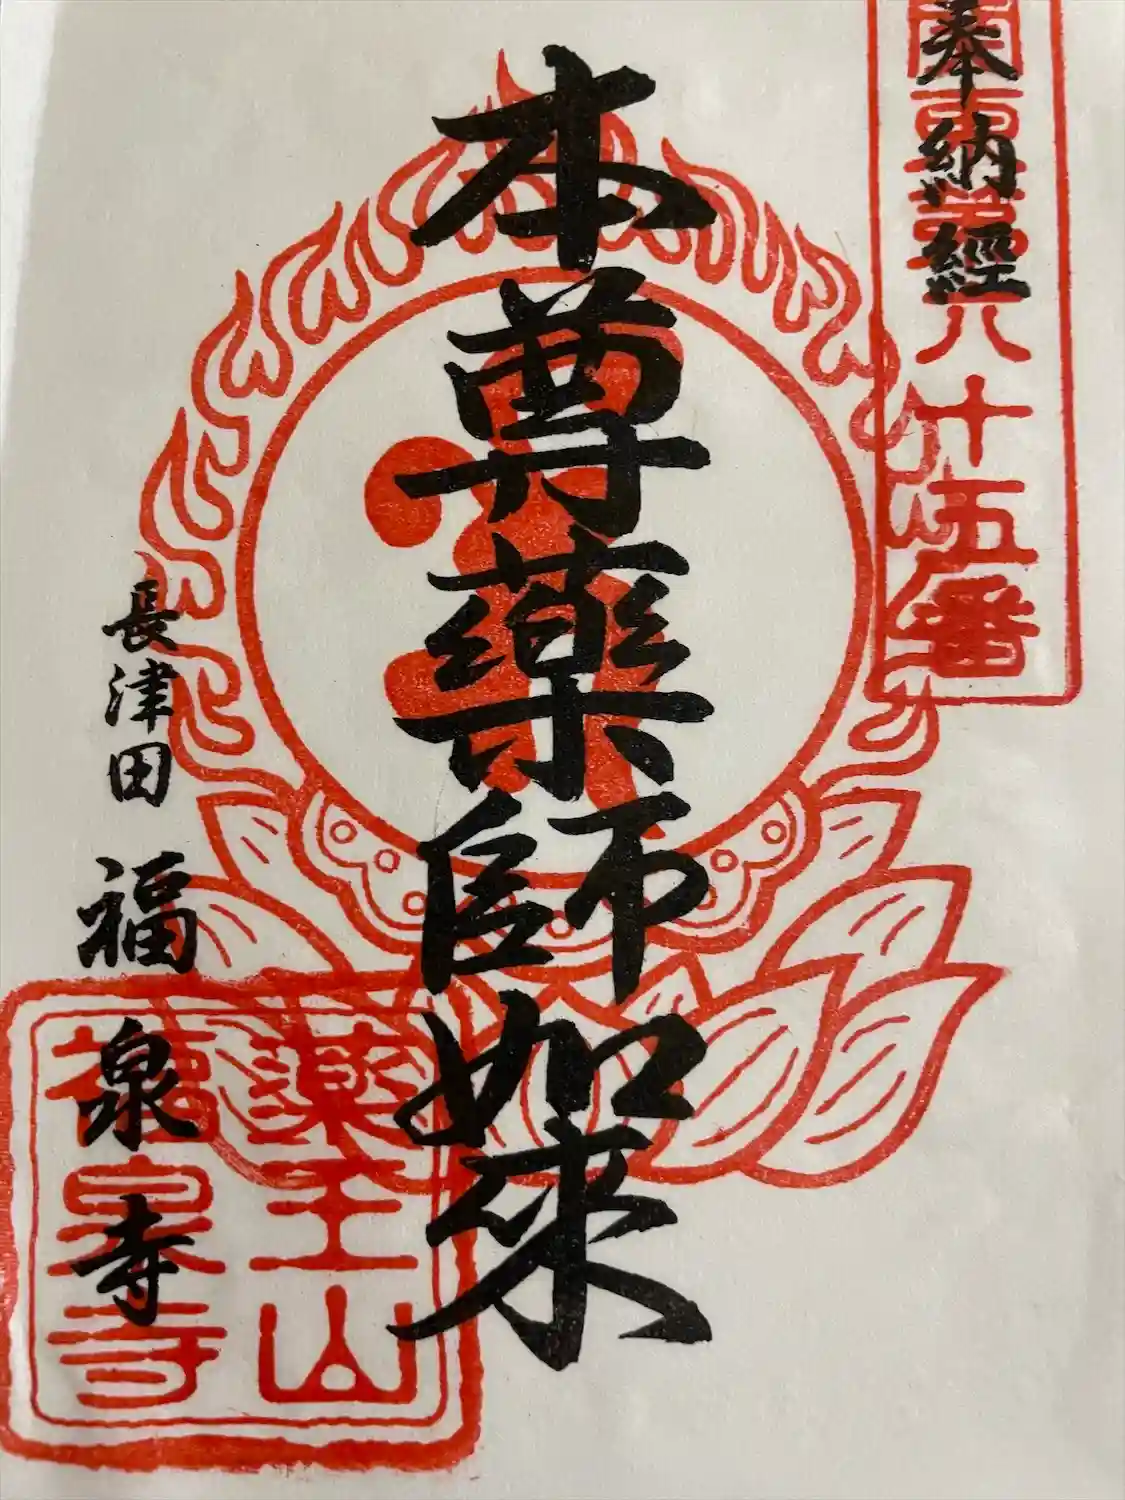 奉納經
八十五番
本尊薬師如来
長津田 福泉寺
薬王山
福泉寺